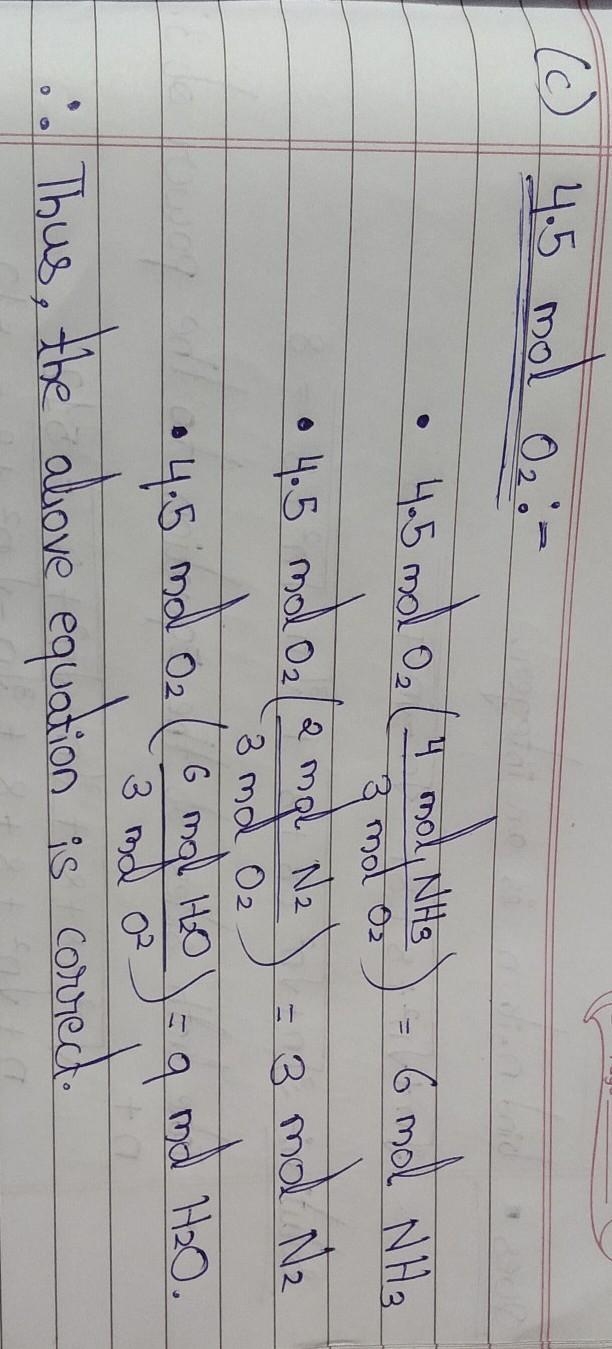 (c) 4.5 mol O₂ :-
• 4.5 mol O₂ (4 mol NH₃ / 3 mol O₂) = 6 mol NH₃
• 4.5 mol O₂ (2 mol N₂ / 3 mol O₂) = 3 mol N₂
• 4.5 mol O₂ (6 mol H₂O / 3 mol O²) = 9 mol H₂O.
∴ Thus, the above equation is correct.